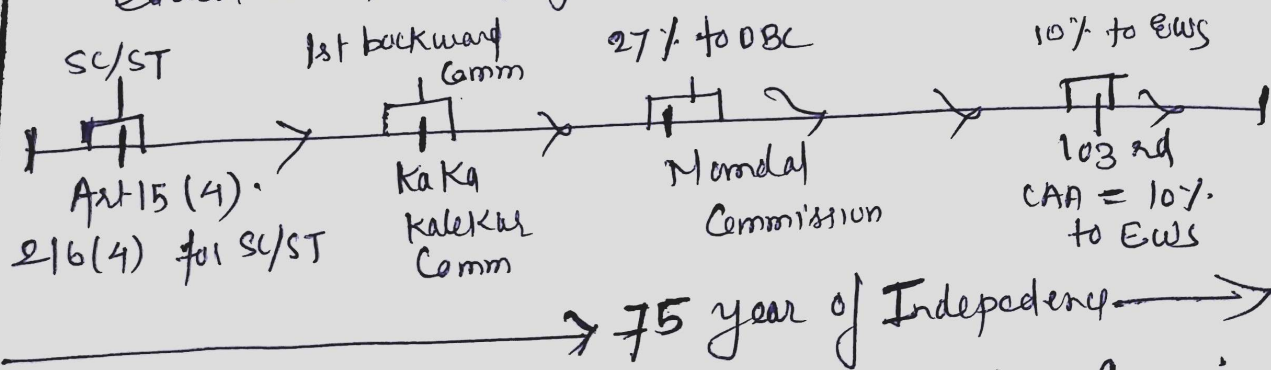 SC/ST
1st backward
Comm
27% to OBC
10% to EWS
Art 15 (4).
216(4) for SC/ST
Kaka
Kalekar
Comm
Mandal
Commission
103 rd
CAA = 10%.
to EWS
75 year of Indepedence